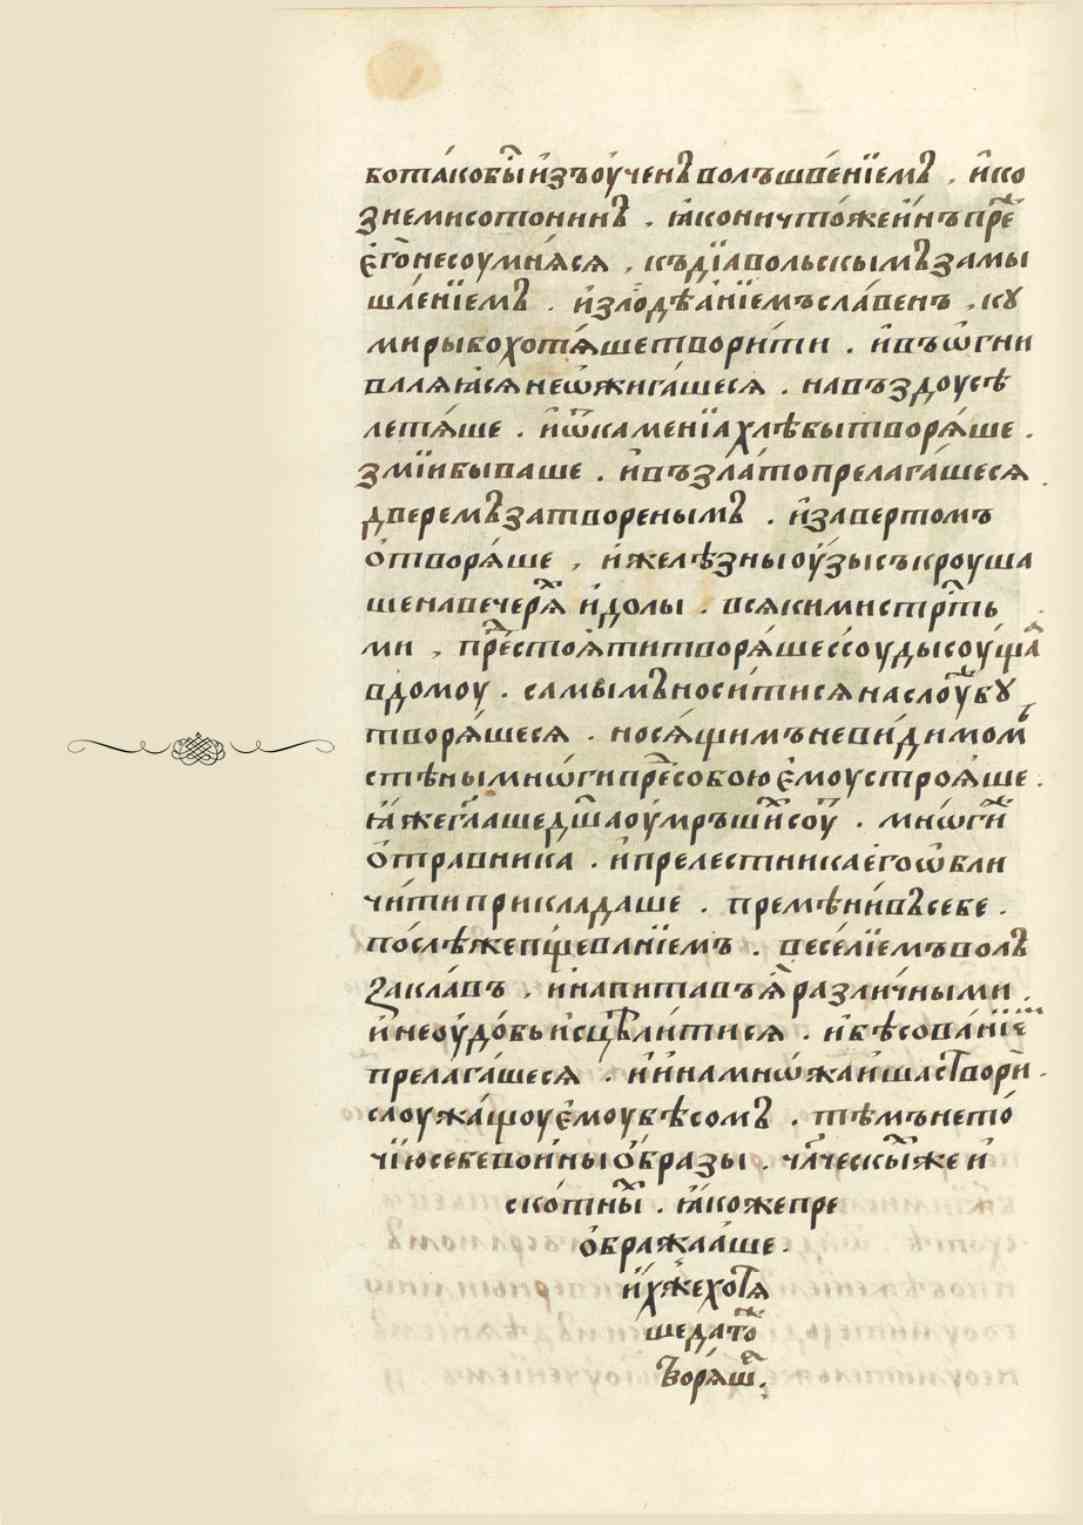 ботако́вы́й и҆зъоу҆ченъ волъшве́нїемъ . и҆ко
знемисотонинъ . ꙗ҆коничто́жеи҆нъпре́
є҆го̀несоумнѧ́сѧ , къдїавольскымъзамы
шле́нїемъ . и҆злодѣа́нїемъсла́венъ , кꙋ
мирыбохотѧ́шетвори́ти . и҆въѡ҆гни
валѧꙗ́сѧнеѡ҆жига́шесѧ . навъздоусѣ
летѧ́ше . и҆ѿкаменїахлѣбытворѧ́ше .
змїибываше . и҆възла́топрелага́шесѧ .
дверемъзатвореным̾ъ . и҆завертомъ
о҆творѧ́ше , и҆желѣзныоу҆зысъкроуша
шенавечерѧ̑ и҆долы . всѧкимистрⷭ҇ть
ми , пре́стоѧ́титворѧ́шессоудысоу́щаѧ
вдомоу . самѣмъноси́тисѧнаслоужбꙋ
творѧ́шесѧ . носѧ́щимъневи́димомъ
стѣнымнѡ́гипре́собоює҆моустроѧ́ше .
ꙗ҆́жегл҃ашед҃шаоу҆мръшихсоу́ . мнѡ́гих
о҆травника . и҆прелестникаего̀ѡ҆бли
чи́типрикладаше . премѣни́въсебе .
по́слѣжепще́ва́нїемъ . весе́лїемъволъ
закла́въ . и҆напитавъѧ̀разли́чными .
и҆неоу҆до́бьи҆сцѣли́тисѧ . и҆бѣсова́нїе
прелага́шесѧ . и҆и҆намнѡ́жаи҆шасⷮвори .
слоужа́щоуємоубѣсомъ . тѣмънето́
чїюсебевои҆ныо҆́бразы . чл҃ческы́же и҆
ско́тны́ . ꙗ҆́кожепре
о҆бражаа́ше .
и҆́хжехотѧ
шедато
ворѧ́ше .